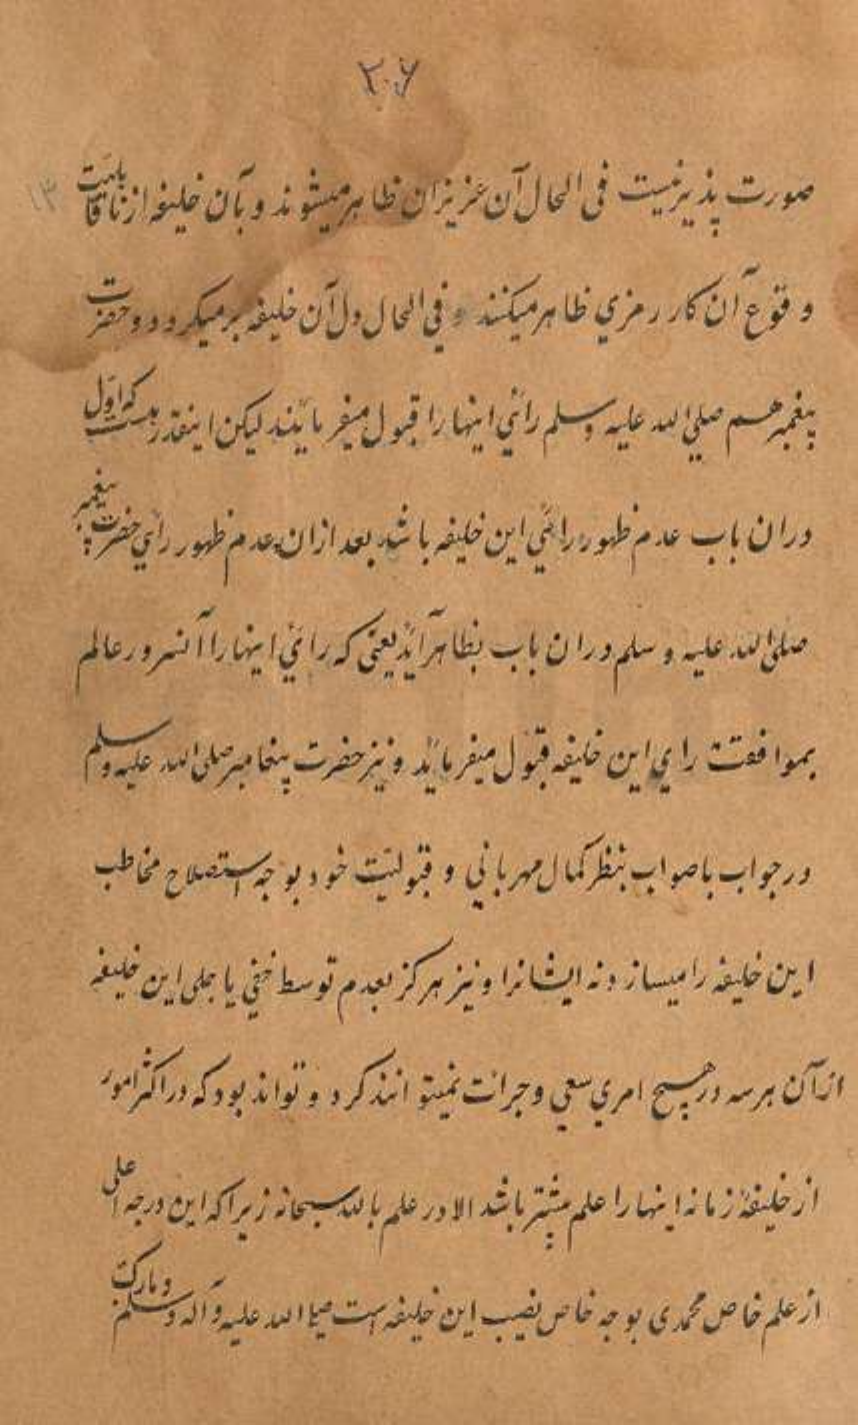 ۲۰۶
صورت پذیر نیست فی الحال آن عزیزان ظاهر میشوند و بآن خلیفه از ناقابلیت
۱۳
وقوع آن کار رمزي ظاهر میکنند و في الحال دل آن خلیفه برمیکردد و حضرت
پیغمبر هم صلي الله علیه وسلم رائي اینها را قبول میفرمایند لیکن اینقدر هست که اول
دران باب عدم ظهور رائي این خلیفه باشد بعد ازان عدم ظهور رائي حضرت پیغمبر
صلي الله علیه و سلم دران باب بظاهر آید یعنی که رائي اینها را آنسرور عالم
بموافقت راي این خلیفه قبول میفرماید و نیز حضرت پیغامبر صلی الله علیه وسلم
در جواب باصواب بنظر کمال مهربانی و قبولیت خود بوجه استصلاح مخاطب
این خلیفه را میسازد نه ایشانرا و نیز هرکز بعدم توسط خفي یا جلی این خلیفه
از آن هرسه در هیچ امري سعي و جرات نمیتوانند کرد و تواند بود که در اکثر امور
از خلیفهٔ زمانه اینها را علم بیشتر باشد الا در علم بالله سبحانه زیرا که این درجه اعلی
از علم خاص محمدی بوجه خاص نصیب این خلیفه است صلی الله علیه و آله وسلم و بارک